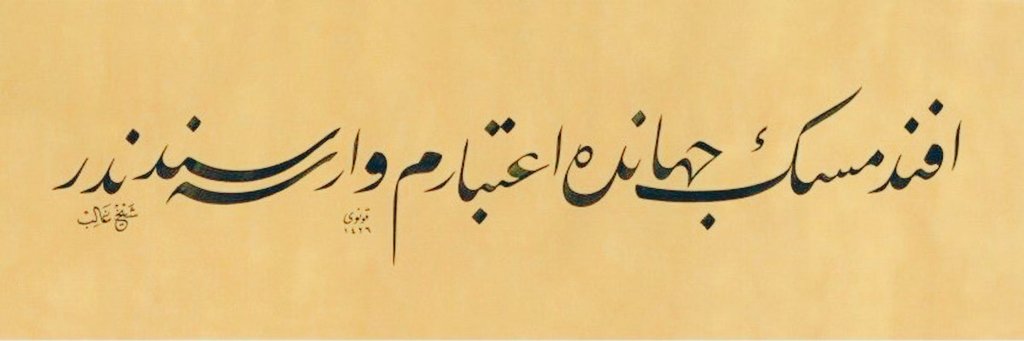 افندمسك جهانده اعتبارم وارسه سندندر
شيخ غالب
قونوى
١٤٢٦